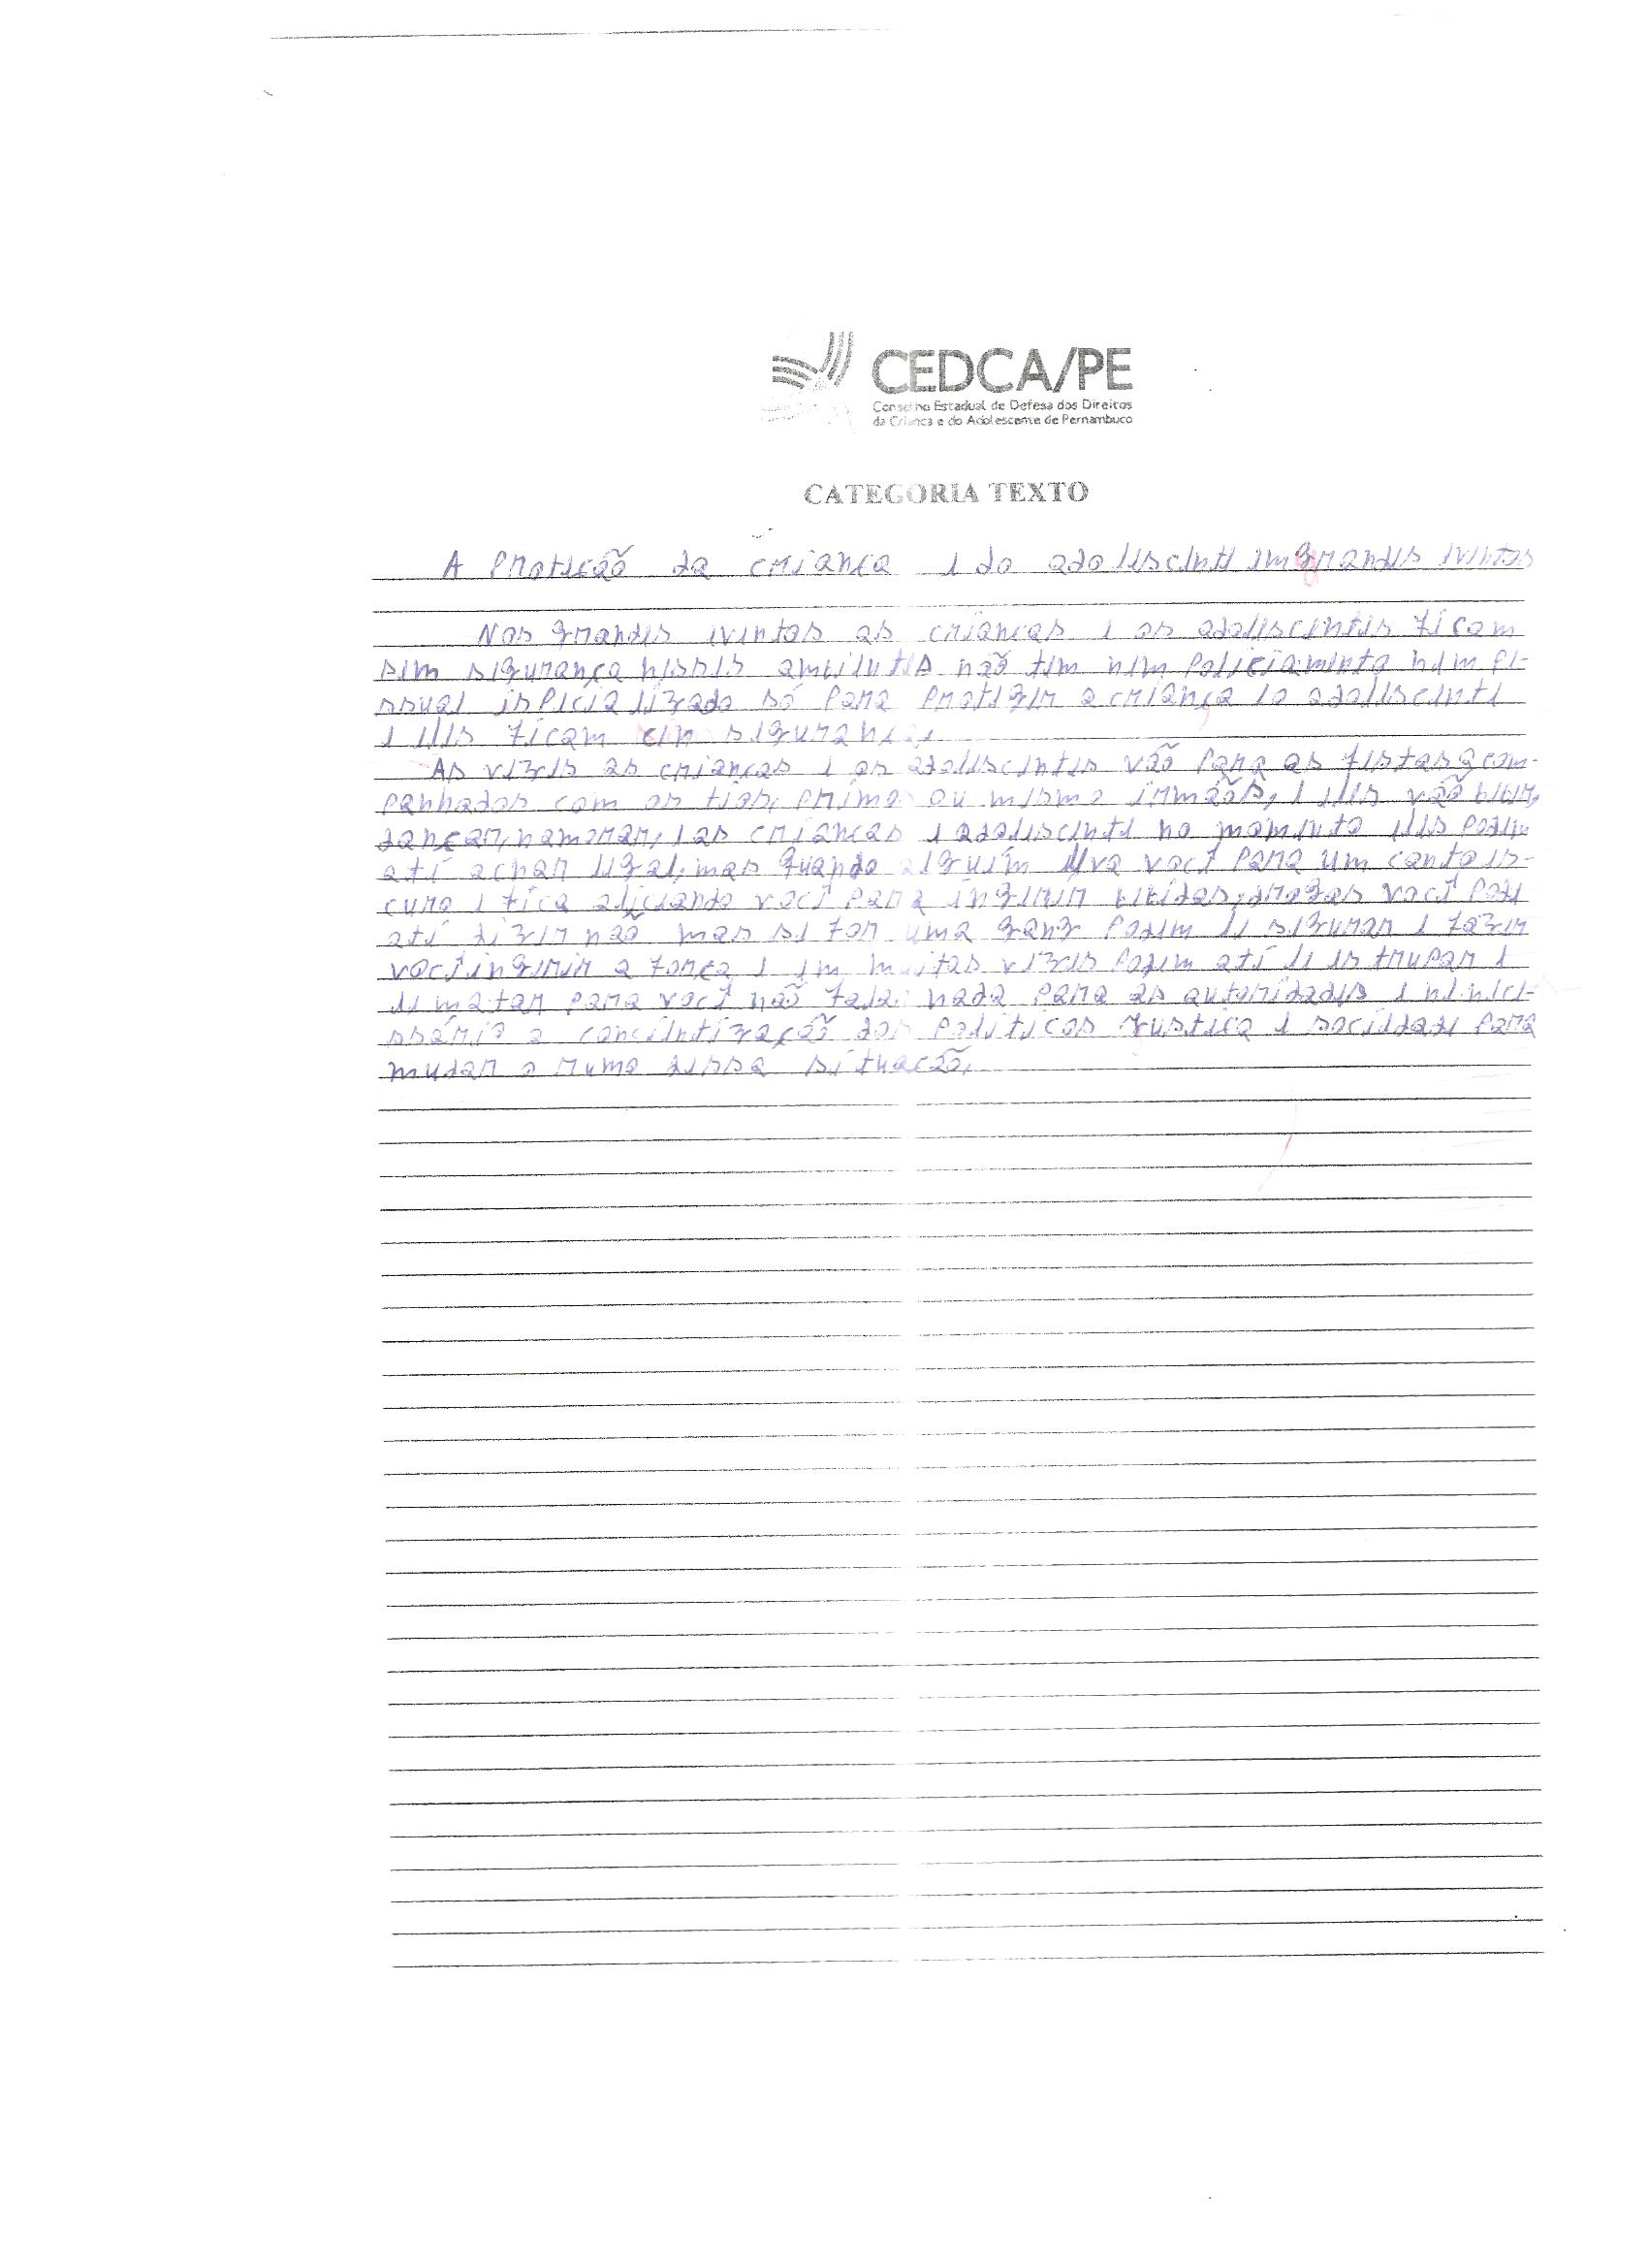 CEDCA/PE
Conselho Estadual de Defesa dos Direitos
da Criança e do Adolescente de Pernambuco
CATEGORIA TEXTO
A Proteção da criança e do adolescente em grandes eventos
Nos grandes eventos as crianças e os adolescentes ficam
sem segurança nesses ambientes não tem nem policiamento nem pe-
ssual especializado só para proteger a criança e o adolescente
e eles ficam cin segurança.
As vezes as crianças e os adolescentes vão para as festas acom-
panhados com os tios, primos ou mesmo irmãos, e eles vão beber,
dançar, namorar, e as crianças e adolescente no momento eles podem
até achar legal, mas quando alguém leva você para um canto es-
curo e fica aliciando você para ingerir bebidas, drogas você pode
até dizer não mas se for uma gang podem te segurar e fazer
você ingerir a força e em muitas vezes podem até te estrupar e
te matar para você não falar nada para as autoridades e nece-
ssário a concientização dos políticos justiça e sociedade para
mudar o rumo dessa situação.